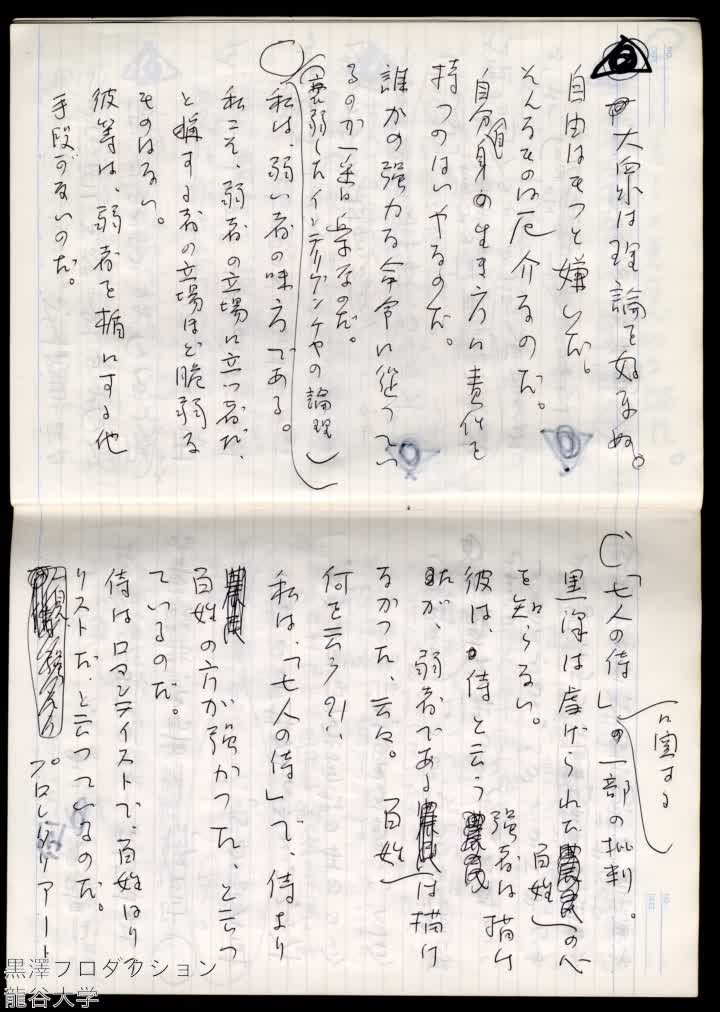 大衆は理論を好まぬ。
自由はもっと嫌いだ。
そんなものは厄介なのだ。
自分自身の生き方に責任を
持つのはいやなのだ。
誰かの強力な命令に従ってい
るのが一番楽なのだ。
(衰弱したインテリゲンチャの論理)
私は、弱い者の味方である。
私こそ、弱者の立場に立つ者だ、
と称する者の立場ほど脆弱な
ものはない。
彼等は、弱者を楯にする他
手段がないのだ。
「七人の侍」の一部の批判。
に関する
黒澤は虐げられた百姓の心
を知らない。
彼は、侍と云う強者は描け
たが、弱者である百姓は描け
なかった、云々。
何を云うのだ
私は、「七人の侍」で、侍より
百姓の方が強かった、と云っ
ているのだ。
侍はロマンテイストで、百姓はリア
リストだ、と云っているのだ。
プロレタリアート
黒澤プロダクション
龍谷大学